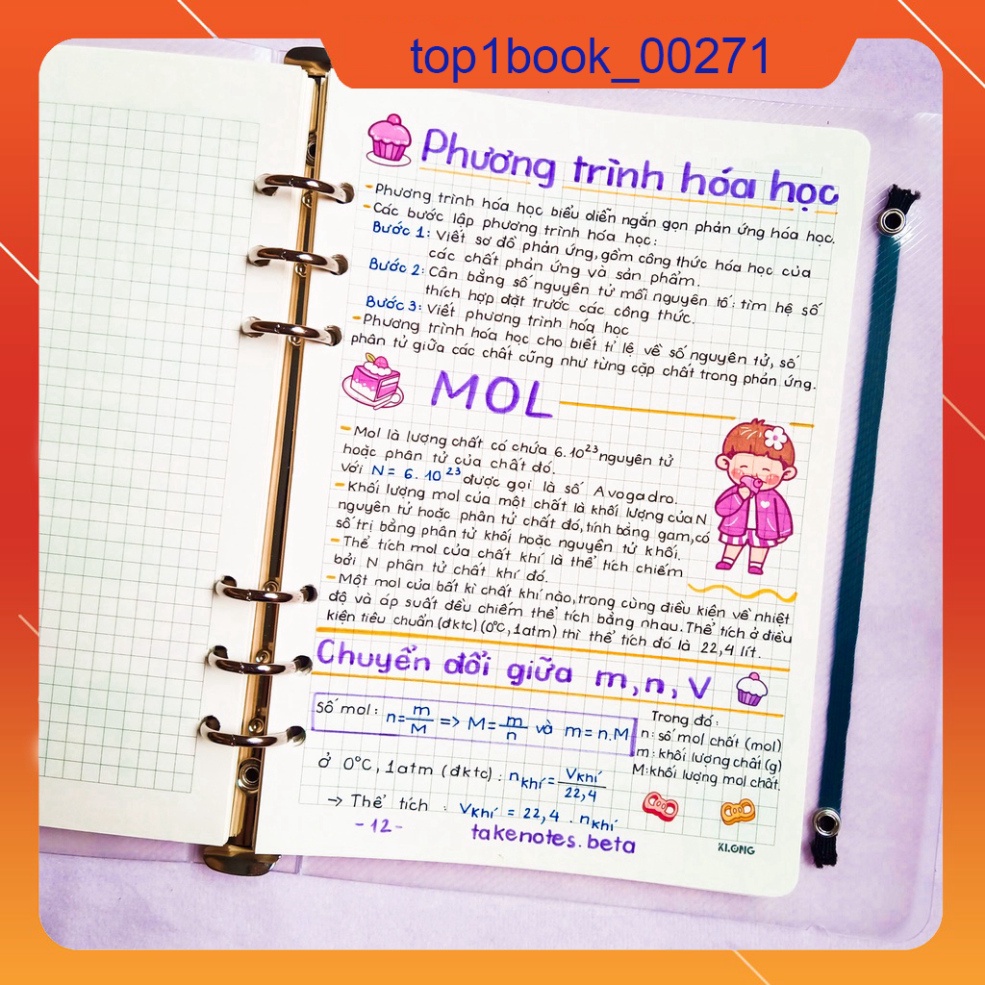 top1book_00271
Phương trình hóa học
- Phương trình hóa học biểu diễn ngắn gọn phản ứng hóa học.
- Các bước lập phương trình hóa học:
Bước 1: Viết sơ đồ phản ứng, gồm công thức hóa học của
các chất phản ứng và sản phẩm.
Bước 2: Cân bằng số nguyên tử mỗi nguyên tố: tìm hệ số
thích hợp đặt trước các công thức.
Bước 3: Viết phương trình hóa học
- Phương trình hóa học cho biết tỉ lệ về số nguyên tử, số
phân tử giữa các chất cũng như từng cặp chất trong phản ứng.
MOL
- Mol là lượng chất có chứa 6.10²³ nguyên tử
hoặc phân tử của chất đó.
Với N = 6.10²³ được gọi là số Avogadro.
- Khối lượng mol của một chất là khối lượng của N
nguyên tử hoặc phân tử chất đó, tính bằng gam, có
số trị bằng phân tử khối hoặc nguyên tử khối.
- Thể tích mol của chất khí là thể tích chiếm
bởi N phân tử chất khí đó.
- Một mol của bất kì chất khí nào, trong cùng điều kiện về nhiệt
độ và áp suất đều chiếm thể tích bằng nhau. Thể tích ở điều
kiện tiêu chuẩn (đktc) (0°C, 1atm) thì thể tích đó là 22,4 lít.
Chuyển đổi giữa m, n, V
Số mol: n = m/M => M = m/n và m = n.M
Trong đó:
n: số mol chất (mol)
m: khối lượng chất (g)
M: khối lượng mol chất.
ở 0°C, 1atm (đktc): n khí = V khí/22,4
→ Thể tích : V khí = 22,4 . n khí
-12-
takenotes.beta
XI.ONG